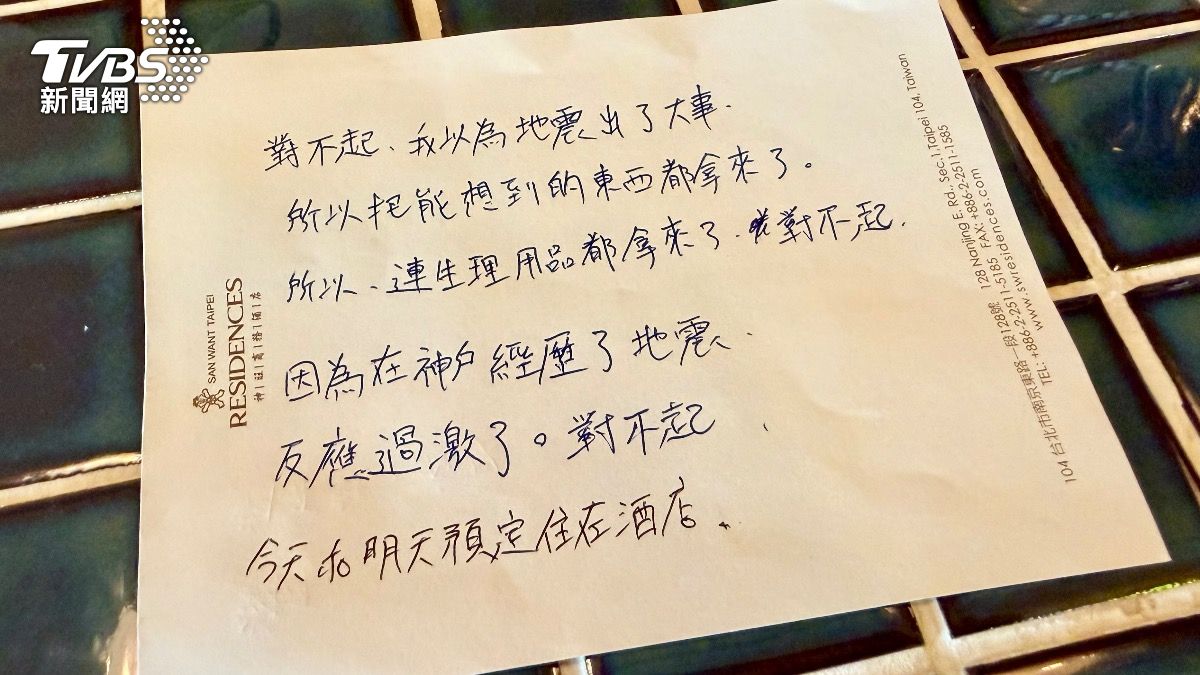 TVBS
新聞網
對不起、我以為地震出了大事.
所以把能想到的東西都拿來了。
所以、連生理用品都拿來了.對不起.
因為在神戶經歷了地震、
反應過激了。對不起
今天和明天預定住在酒店.
SAN WANT TAIPEI
RESIDENCES
神|旺|商|務|酒|店
104 台北市南京東路一段128號 128 Nanjing E. Rd., Sec.1 Taipei 104, Taiwan
TEL: +886-2-2511-5185 FAX: +886-2-2511-1585
www.swresidences.com